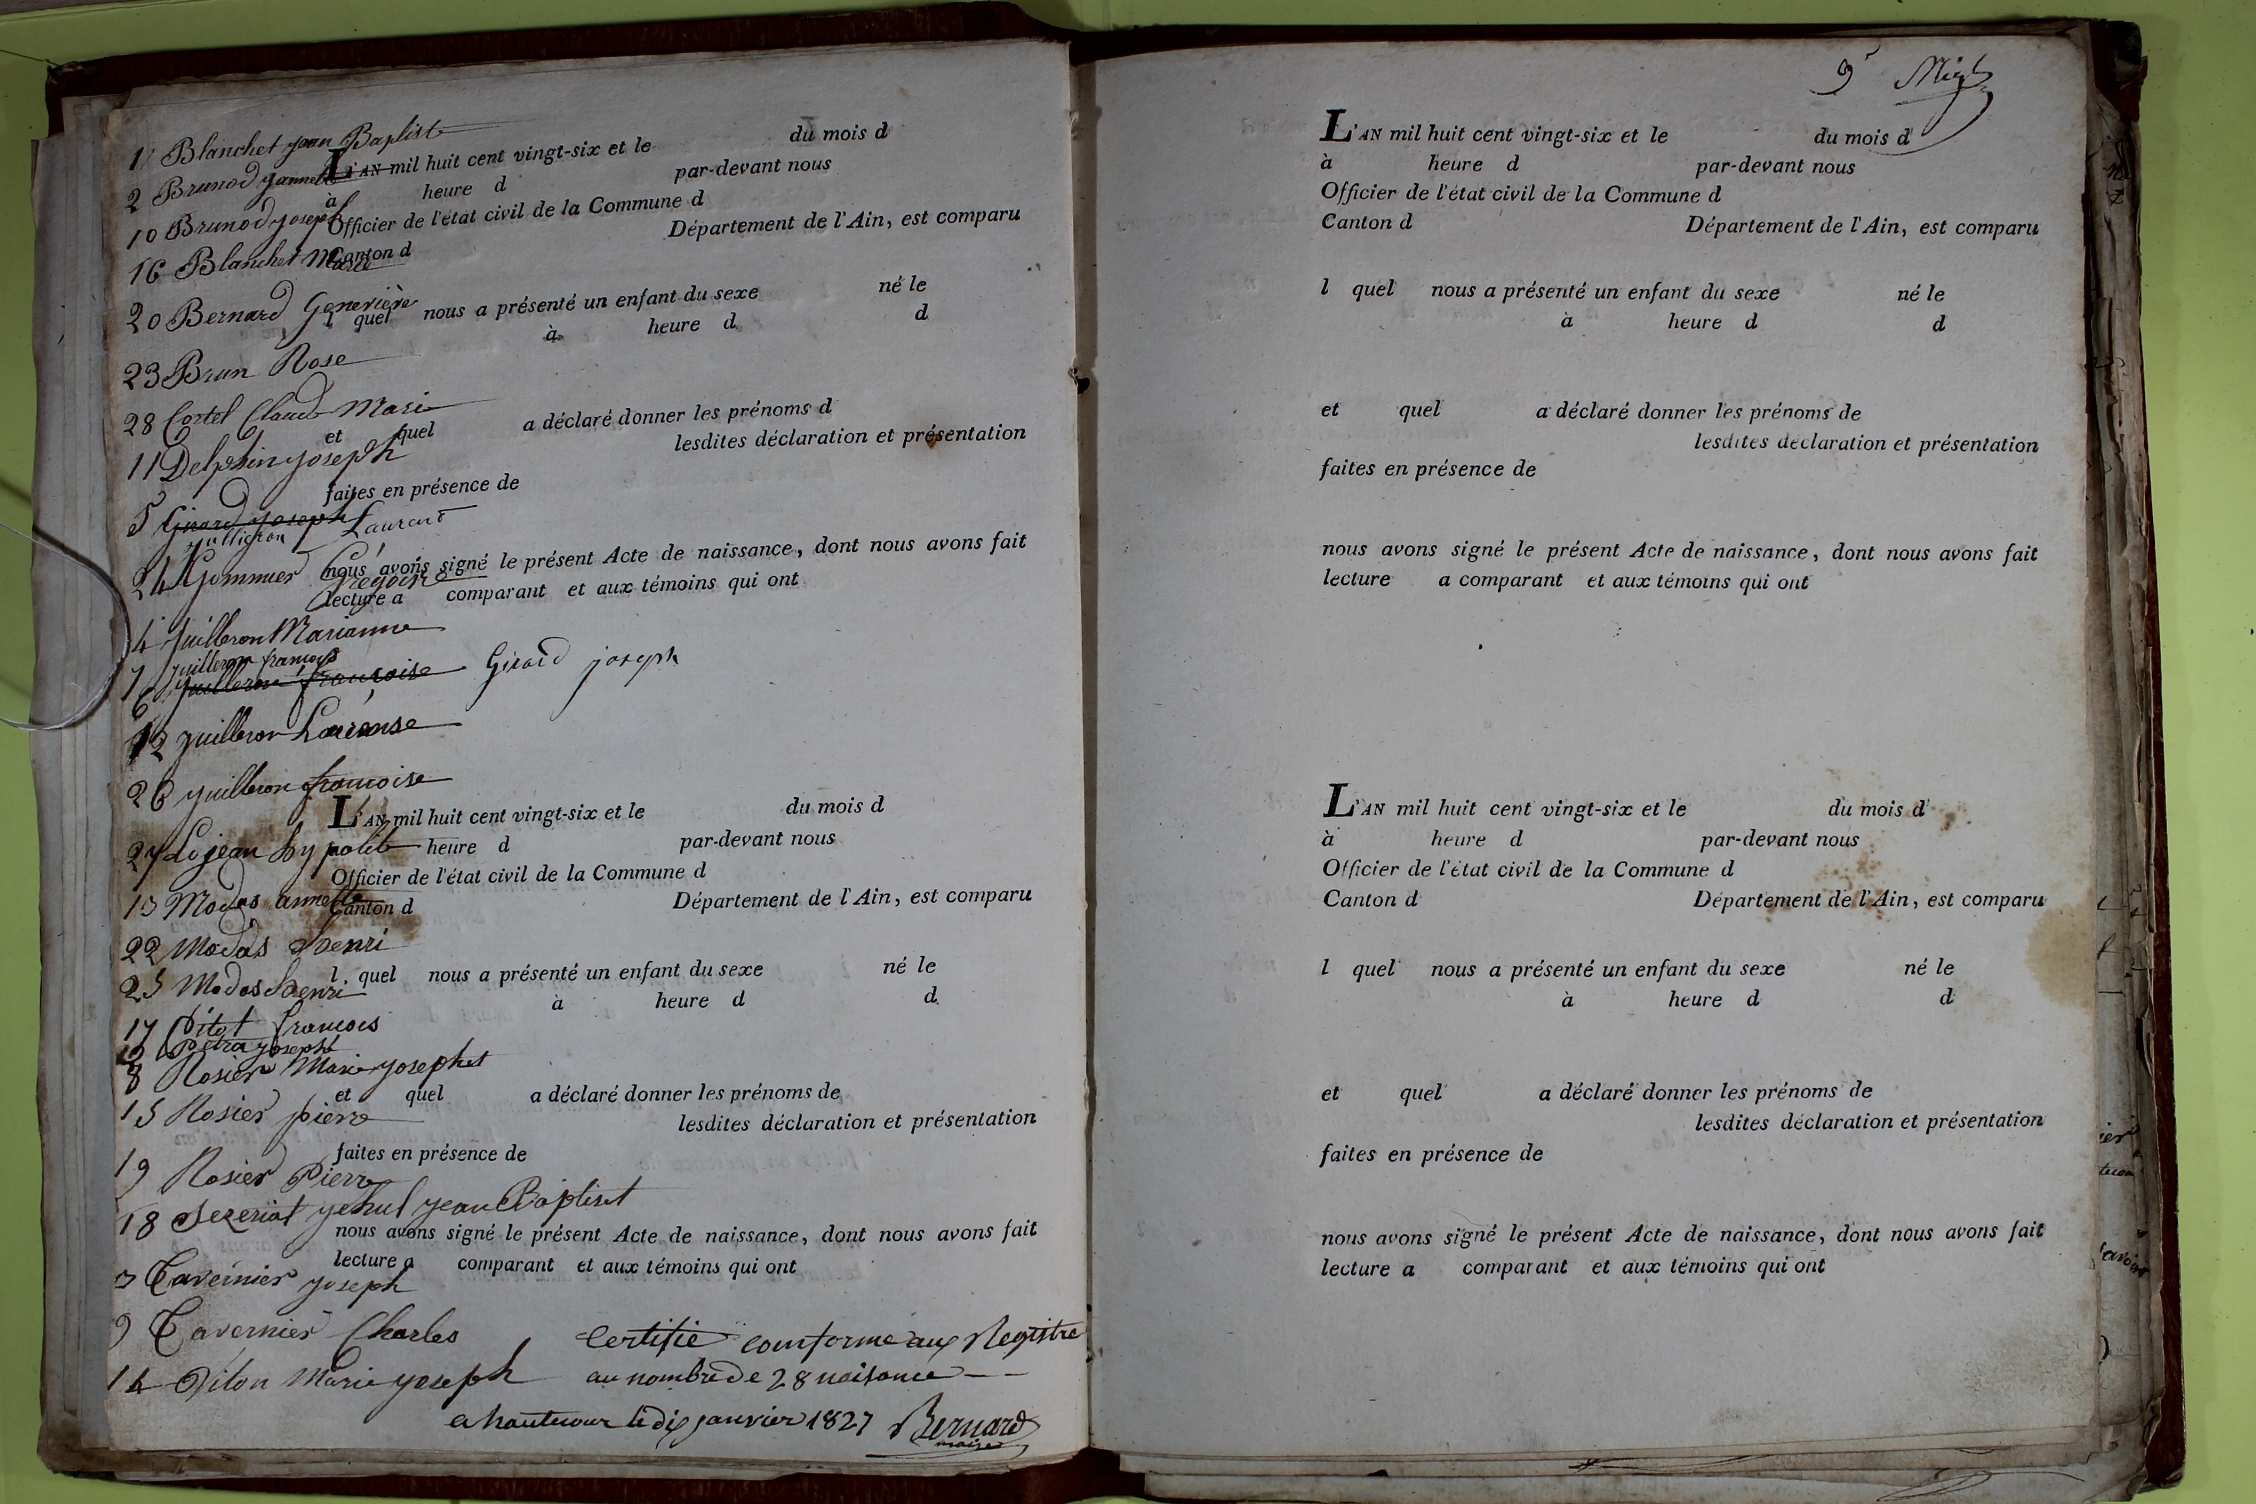 1 Blanchet jean Baptiste
L'AN mil huit cent vingt-six et le du mois d
2 Brunod
à heure d par-devant nous
10 Brunod joseph
Officier de l'état civil de la Commune d
Canton d Département de l'Ain, est comparu
16 Blanchet Marie
20 Bernard Generière
l quel nous a présenté un enfant du sexe né le
à heure d d
23 Brun Rose
28 Cortel Claude Marie
et quel a déclaré donner les prénoms d
lesdites déclaration et présentation
11 Delphin joseph
faites en présence de
5 Girard joseph
Laurent
24 Gommier
nous avons signé le présent Acte de naissance, dont nous avons fait
Grégoire
lecture a comparant et aux témoins qui ont
4 juilleron Marianne
7 juilleron françois
6 juilleron françoise Girard joseph
12 juilleron
26 juilleron françoise
L'AN mil huit cent vingt-six et le du mois d
27 Lojean hypolite
heure d par-devant nous
Officier de l'état civil de la Commune d
13 Modas annette
Canton d Département de l'Ain, est comparu
22 Modas henri
l quel nous a présenté un enfant du sexe né le
25 Modas henri
à heure d d
17 Pitot francois
Petra joseph
8 Rosier Marie josephet
et quel a déclaré donner les prénoms de
15 Rosier pierre
lesdites déclaration et présentation
faites en présence de
19 Rosier Pierre
18 Sezeriat jean Baptiset
nous avons signé le présent Acte de naissance, dont nous avons fait
lecture a comparant et aux témoins qui ont
3 Tavernier joseph
9 Tavernier Charles
14 Marie joseph
Certifié conforme aux Registre
au nombre de 28 naisance
a hautecour le dix janvier 1827 Bernard
maire
9
L'AN mil huit cent vingt-six et le du mois d
à heure d par-devant nous
Officier de l'état civil de la Commune d
Canton d Département de l'Ain, est comparu
l quel nous a présenté un enfant du sexe né le
à heure d d
et quel a déclaré donner les prénoms de
lesdites déclaration et présentation
faites en présence de
nous avons signé le présent Acte de naissance, dont nous avons fait
lecture a comparant et aux témoins qui ont
L'AN mil huit cent vingt-six et le du mois d
à heure d par-devant nous
Officier de l'état civil de la Commune d
Canton d Département de l'Ain, est comparu
l quel nous a présenté un enfant du sexe né le
à heure d d
et quel a déclaré donner les prénoms de
lesdites déclaration et présentation
faites en présence de
nous avons signé le présent Acte de naissance, dont nous avons fait
lecture a comparant et aux témoins qui ont